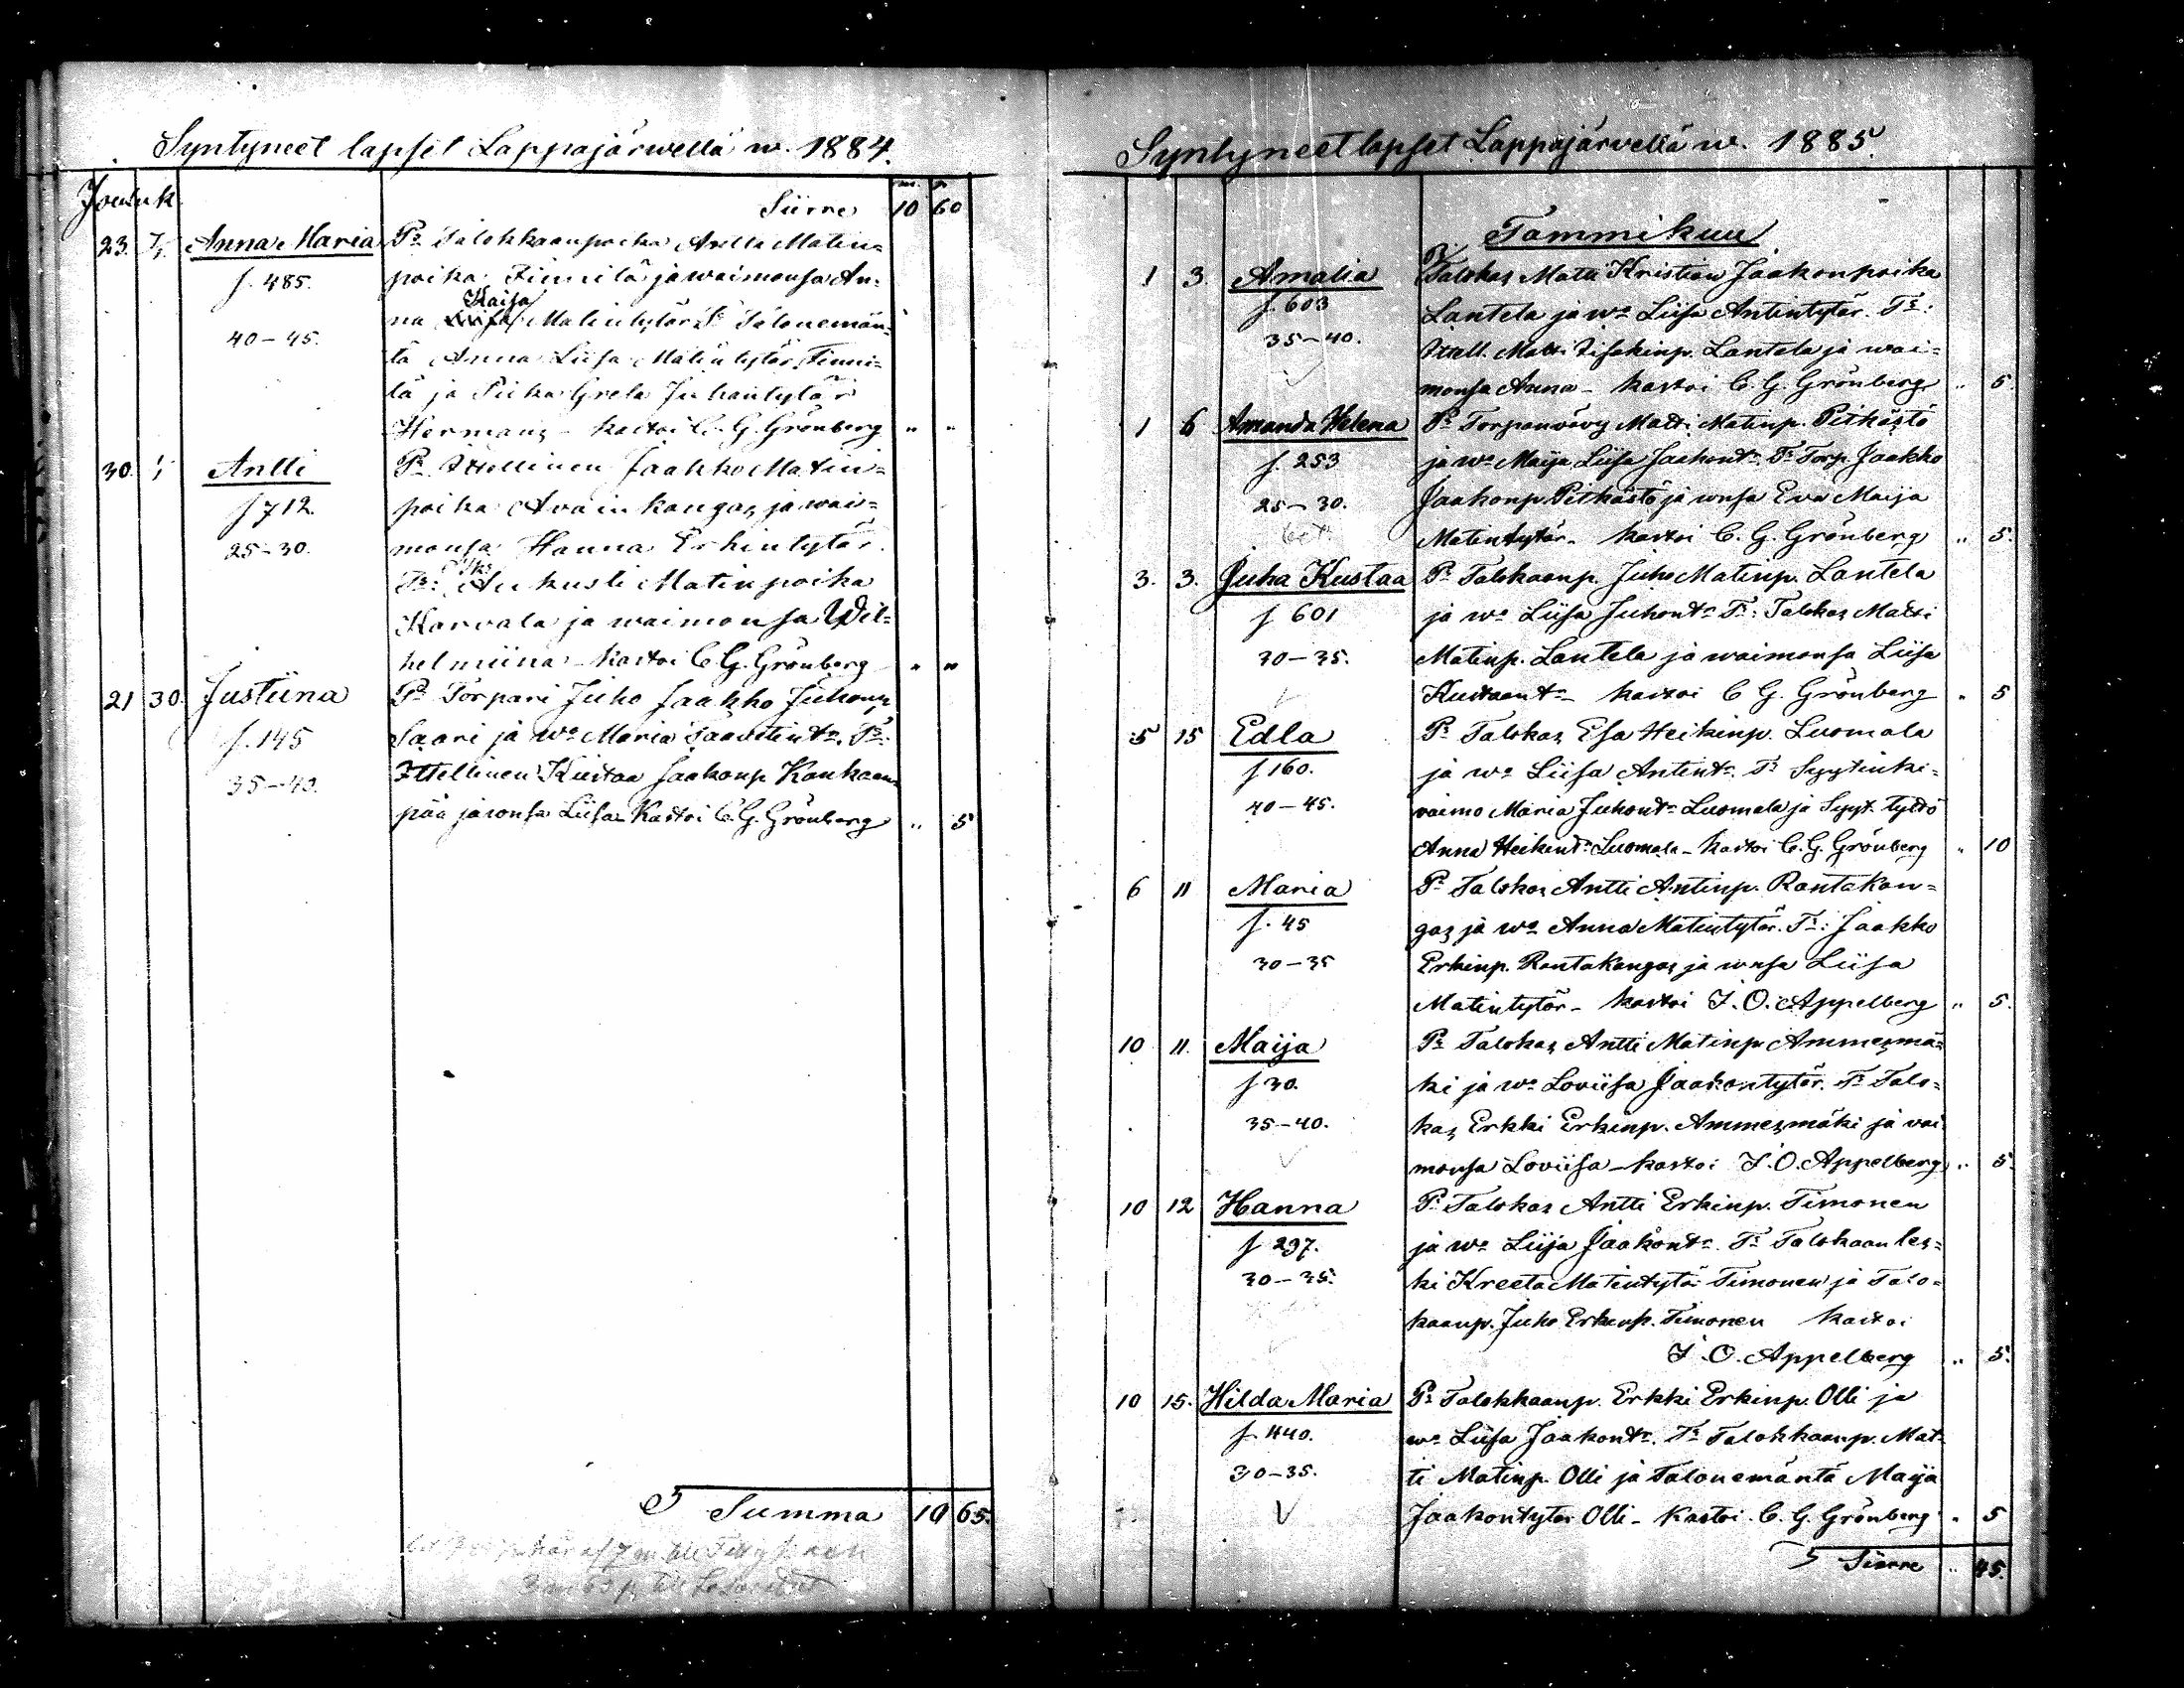 Syntyneet lapset Lappajärwellä w. 1884.
Jouluk.
Siirre 10 60
23. Anna Maria Pr Talokkaanpoika Antti Matin=
f. 485. poika Finnilä ja waimonsa An=
Kaisa
na Matintytär Tr Talonemän=
40–45.
tä Anna Liisa Matintytär Finni=
lä ja Piika Greta Juhantytär
Hermans – kastoi C. G. Grönberg " "
30. Antti Pr Itsellinen Jaakko Matin=
f 712. poika Avainkangas ja wai=
25–30. monsa Hanna Erkintytär.
Tr: Aukusti Matinpoika
Karvala ja waimonsa Wil=
helmiina – kastoi C. G. Grönberg " "
21 30. Justiina Pr Torpari Juho Jaakko Juhonp.
f. 145 Saari ja wo Maria Taavetint. Tr:
35–40. Itsellinen Kustaa Jaakonp. Kankaan=
pää ja wnsa Liisa – Kastoi C. G. Grönberg " 5
Summa 10 65.
Syntyneet lapset Lappajärvellä w. 1885.
Tammikuu
1 3. Amalia Talokas Matti Kristian Jaakonpoika
f. 603 Lantela ja wo Liisa Antintytär. Tr:
35–40. Itsell. Matti Iisakinp. Lantela ja wai=
monsa Anna – kastoi C. G. Grönberg " 5.
1 6 Amanda Helena Pr Torpanvävy Matti Matinp. Pitkästö
f. 253 ja wo Maija Liisa Jaakont. Tr Torp. Jaakko
25–30. Jaakonp. Pitkästö ja wnsa Eva Maija
Matintytär – kastoi C. G. Grönberg " 5.
3. 3. Juha Kustaa Pr Talokaanp. Juho Matinp. Lantela
f 601 ja wo Liisa Juhont. Tr: Talokas Matti
30–35. Matinp. Lantela ja waimonsa Liisa
Kustaant. – kastoi C G. Grönberg " 5
5 15 Edla Pr Talokas Esa Heikinp. Luomala
f 160. ja wo Liisa Antint. Tr Syytinki=
40–45. vaimo Maria Juhont. Luomala ja Syyt. tyttö
Anna Heikint. Luomala – kastoi C. G. Grönberg " 10
6 11 Maria Pr Talokas Antti Antinp. Rantakan=
f. 45 gas ja wo Anna Matintytär. Tr: Jaakko
30–35 Erkinp. Rantakangas ja wnsa Liisa
Matintytär – kastoi I. O. Appelberg " 5.
10 11. Maija Pr Talokas Antti Matinp. Ammesmä=
f 30. ki ja wo Loviisa Jaakontytär. Tr Talo=
35–40. kas Erkki Erkinp. Ammesmäki ja vai
monsa Loviisa – kastoi I. O. Appelberg " 5.
10 12 Hanna Pr Talokas Antti Erkinp. Timonen
f 297. ja wo Liisa Jaakont. Tr Talokaan les=
30–35. ki Kreeta Matintytär Timonen ja Talo=
kaanp. Juho Erkinp. Timonen kastoi
I. O. Appelberg " 5.
10 15. Hilda Maria Pr Talokkaanp. Erkki Erkinp. Olli ja
f 440. wo Liisa Jaakont. Tr Talokkaanp. Mat=
30–35. ti Matinp. Olli ja Talonemäntä Maija
Jaakontytär Olli – Kastoi C. G. Grönberg " 5
Siirre " 45.